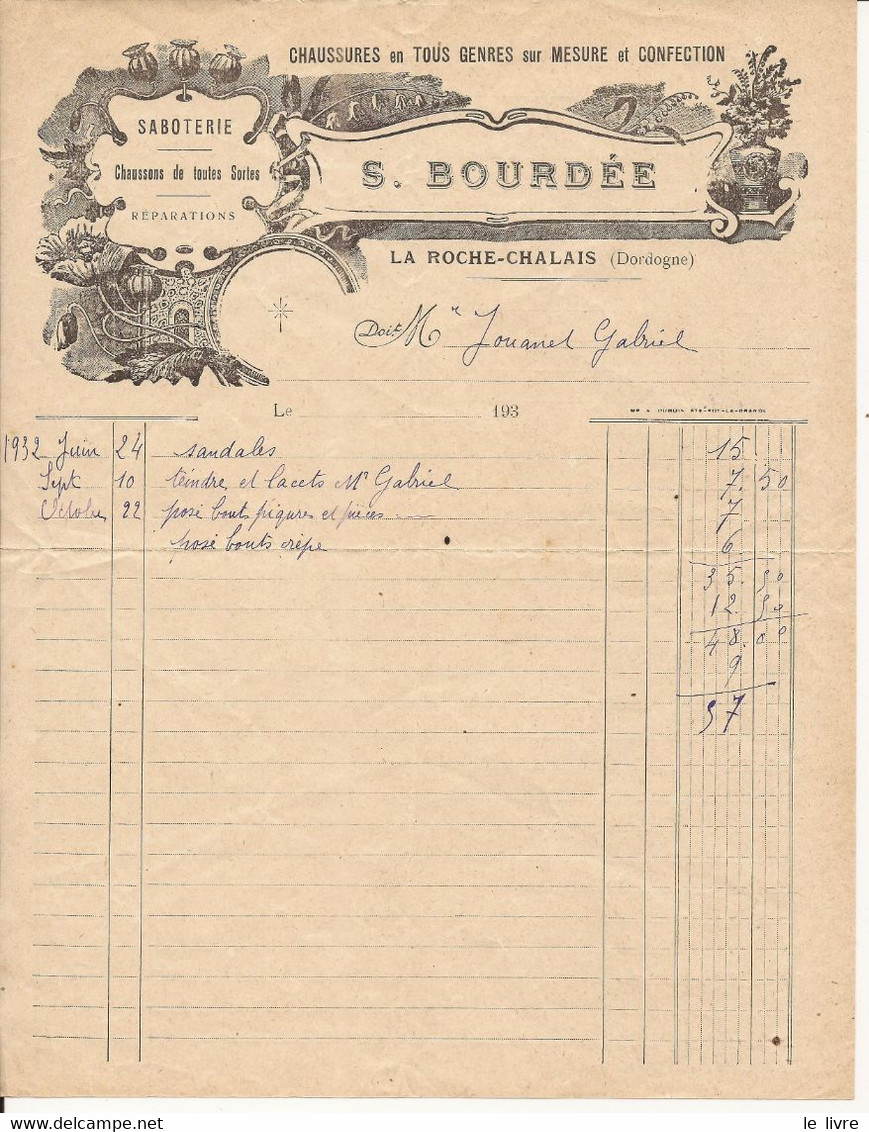 CHAUSSURES en TOUS GENRES sur MESURE et CONFECTION
SABOTERIE
Chaussons de toutes Sortes
RÉPARATIONS
S. BOURDÉE
LA ROCHE-CHALAIS (Dordogne)
Doit Mr Jouanel Gabriel
Le 193
1932 Juin 24 sandales 15
Sept 10 teindre et lacets Mr Gabriel 7. 50
Octobre 22 posé bouts piqures et pièces 7
posé bouts crêpe 6
35. 50
12. 50
48. 00
9
57
le livre